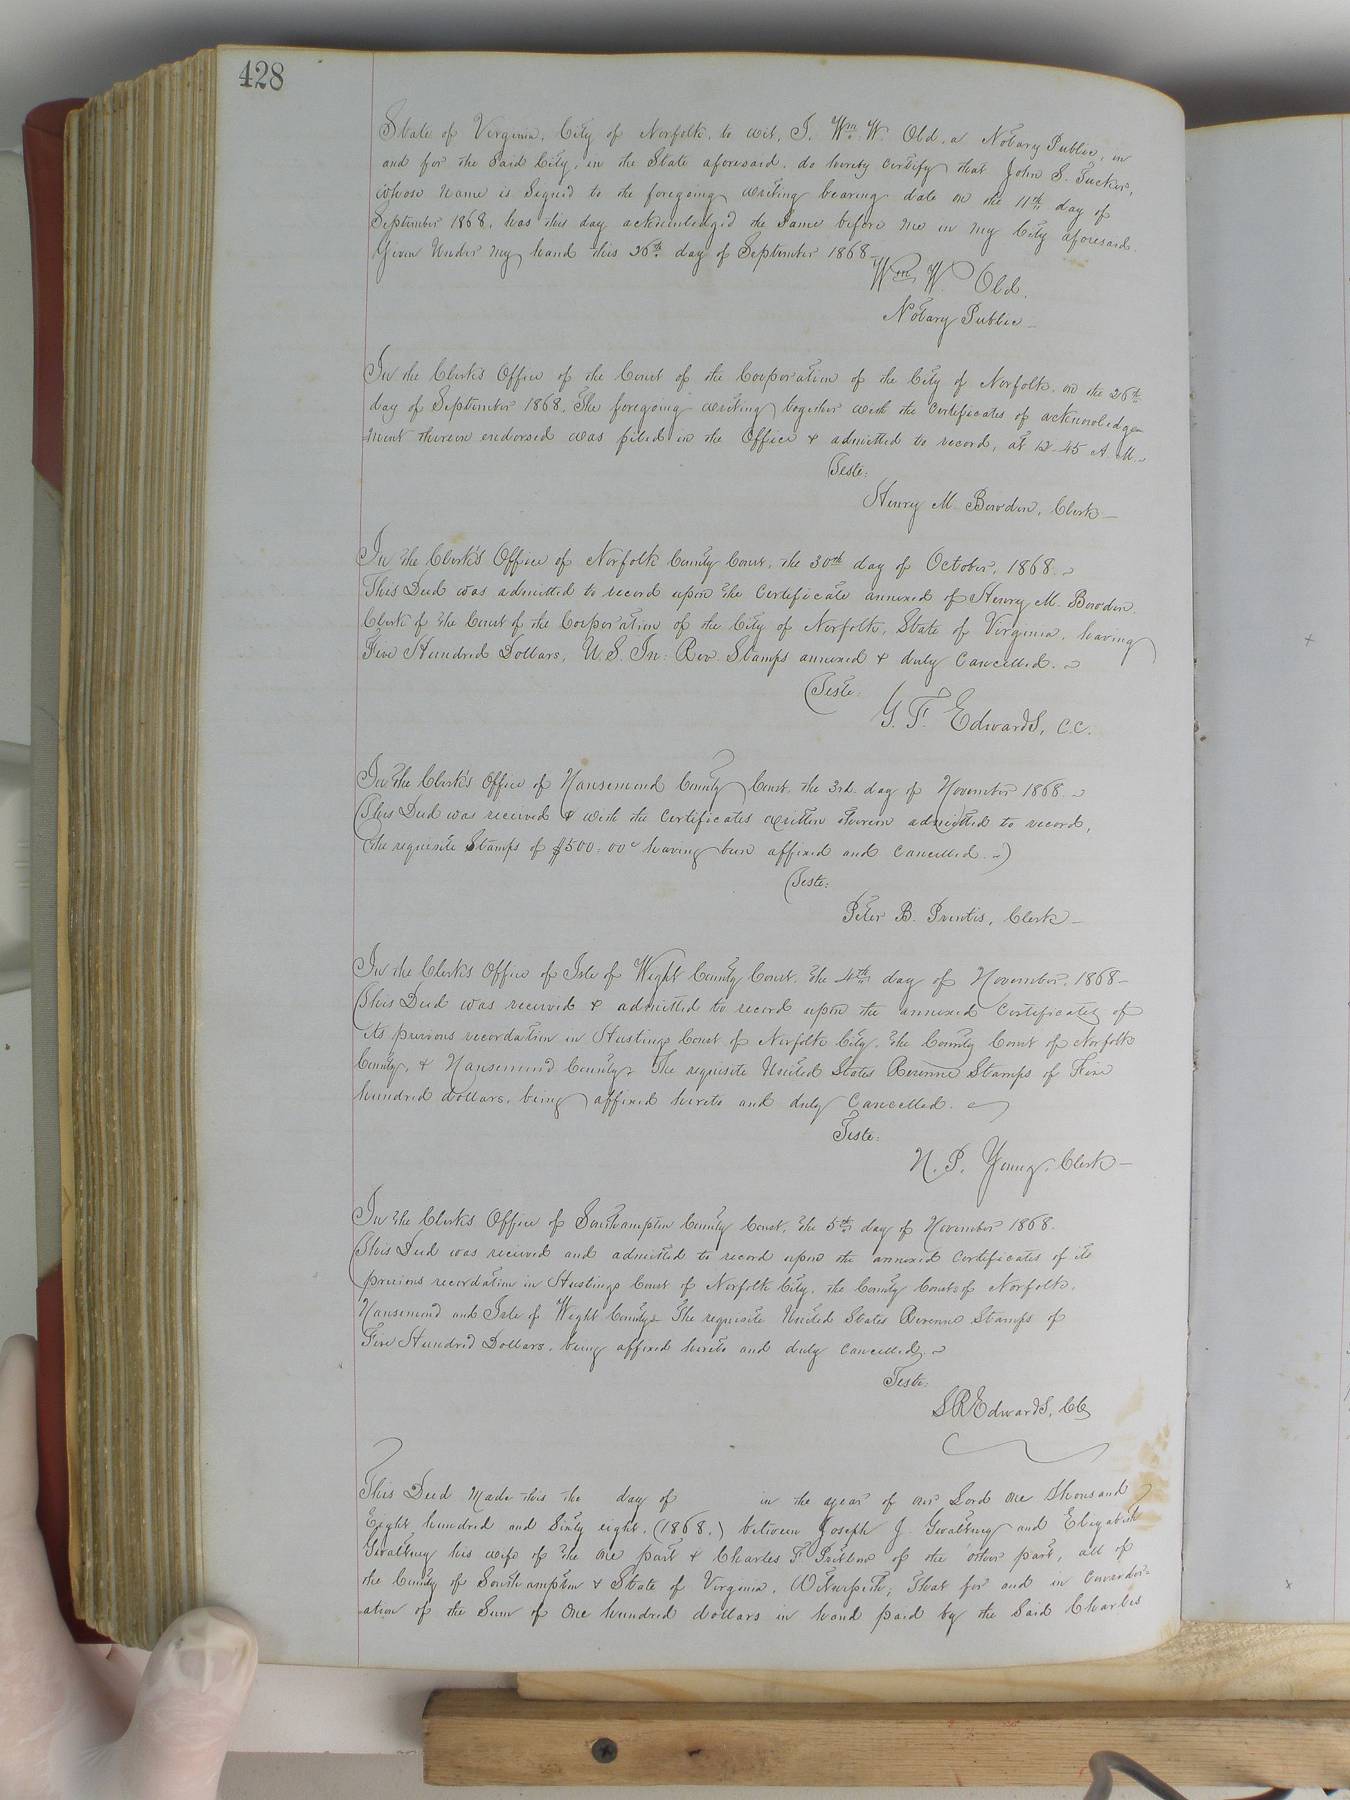 428
State of Virginia, City of Norfolk, to wit, I, Wm. W. Old, a Notary Public, in
and for the Said City, in the State aforesaid, do hereby certify that John S. Tucker,
whose name is Signed to the foregoing writing bearing date on the 11th day of
September 1868, has this day acknowledged the Same before me in my City aforesaid.
Given Under my hand this 26th day of September 1868 –
Wm. W. Old.
Notary Public –
In the Clerk's Office of the Court of the Corporation of the City of Norfolk, on the 26th
day of September 1868, The foregoing writing together with the Certificates of acknowledge
ment thereon endorsed was filed in the Office & admitted to record, at 12.45 A. M.
Teste:
Henry M. Bowden, Clerk –
In the Clerk's Office of Norfolk County Court, the 30th day of October, 1868.
This Deed was admitted to record upon the Certificate annexed of Henry M. Bowden,
Clerk of the Court of the Corporation of the City of Norfolk, State of Virginia, having
Five Hundred Dollars, U.S. In: Rev. Stamps annexed & duly Cancelled.
Teste:
G. T. Edwards, C.C.
In the Clerk's Office of Nansemond County Court, the 3rd day of November 1868.
This Deed was received & with the Certificates written thereon admitted to record,
(the requisite Stamps of $500.00 having been affixed and Cancelled.)
Teste:
Peter B. Prentis, Clerk –
In the Clerk's Office of Isle of Wight County Court, the 4th day of November, 1868 –
This Deed was received & admitted to record upon the annexed Certificates of
its previous recordation in Hustings Court of Norfolk City, the County Court of Norfolk
County, & Nansemond County. The requisite United States Revenue Stamps of Five
hundred dollars, being affixed hereto and duly Cancelled.
Teste:
N. P. Young, Clerk –
In the Clerk's Office of Southampton County Court, the 5th day of November 1868.
This Deed was received and admitted to record upon the annexed Certificates of its
previous recordation in Hustings Court of Norfolk City, the County Courts of Norfolk,
Nansemond and Isle of Wight County. The requisite United States Revenue Stamps of
Five Hundred Dollars, being affixed hereto and duly cancelled.
Teste:
S R Edwards, CC
This Deed Made this the day of in the year of our Lord One thousand
Eight hundred and Sixty eight, (1868,) between Joseph J. Gwaltney and Elizabeth
Gwaltney his wife of the one part & Charles F. Pretlow of the other part, all of
the County of Southampton & State of Virginia, Witnesseth; That for and in Consider-
ation of the Sum of One hundred dollars in hand paid by the Said Charles